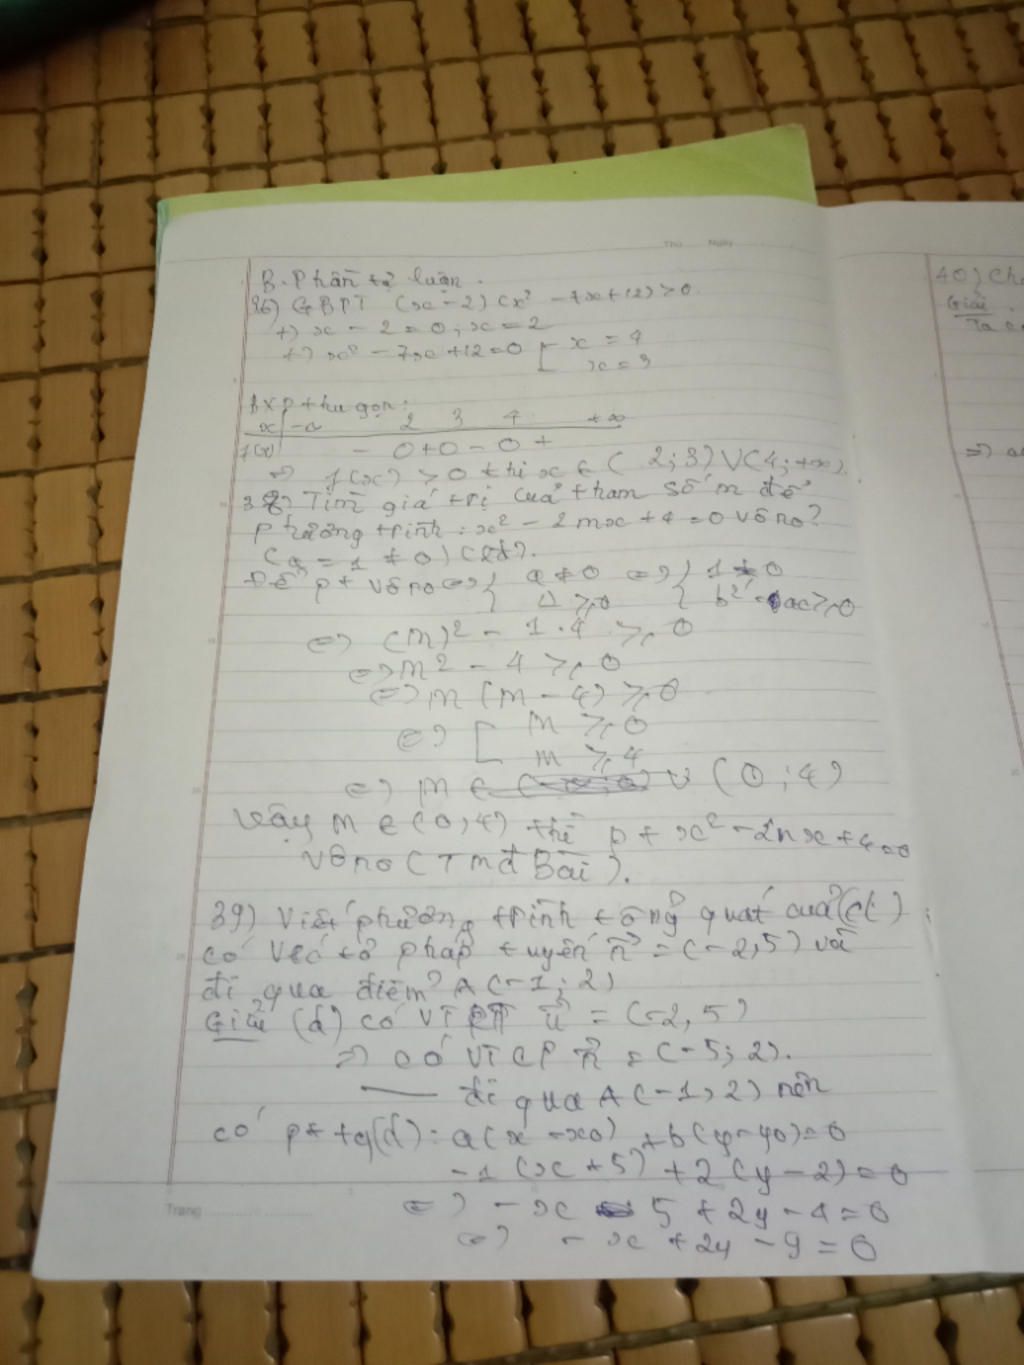 Thứ Ngày
B. Phần tự luận.
36) GBPT (x - 2) (x² - 7x + 12) > 0
+) x - 2 = 0, x = 2
+) x² - 7x + 12 = 0 [ x = 4
x = 3
BXD thu gọn:
x -∞ 2 3 4 +∞
f(x) - 0 + 0 - 0 +
=> f(x) > 0 thì x ∈ ( 2; 3) V (4; +∞).
38) Tìm giá trị của tham số m để
phương trình: x² - 2mx + 4 = 0 vô no?
(a = 1 ≠ 0)
Để pt vô no <=> { a ≠ 0 <=> { 1 ≠ 0
Δ ≥ 0 b'² - ac ≥ 0
<=> (m)² - 1.4 ≥ 0
<=> m² - 4 ≥ 0
<=> m (m - 4) ≥ 0
<=> [ m ≥ 0
m ≥ 4
<=> m ∈ V (0; 4)
Vậy m ∈ (0, 4) thì pt x² - 2mx + 4 = 0
vô no (TmđBài).
39) Viết phương trình tổng quát của (d)
có véc tơ pháp tuyến n = (-2, 5) và
đi qua điểm A (-1; 2)
Giải (d) có VTPT u = (-2, 5)
=> có VTCP n = (-5; 2).
— đi qua A (-1, 2) nên
có pt tq(d): a(x - x0) + b(y - y0) = 0
-1 (x + 5) + 2 (y - 2) = 0
<=> - x - 5 + 2y - 4 = 0
<=> - x + 2y - 9 = 0
Trang
40) Ch
Giải
Ta c
=> a